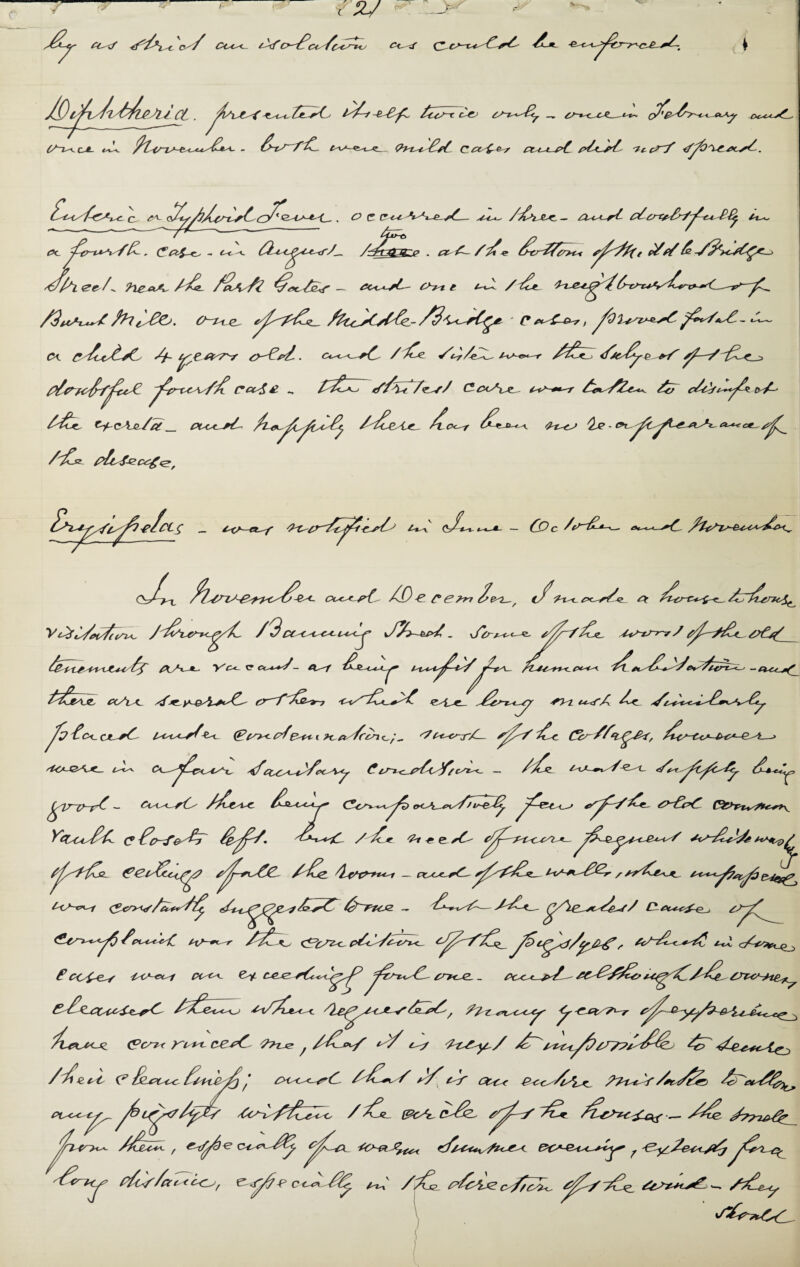 (2)
by as strict an isolation as could be enforced.
Diphtheria. presented itself twice only - once in February and
once in November - both were mild cases and did not spread.
Enteric or Typhoid Fever. occurred in three - and doubtfully in
two
a fourth. case - in August - three. at the bottom of Middle Bridge
Street. near the Park Gates - and one in the neighbourhood of
Burnt Mill. one of the Middle-Bridge cases, proved fatal - in
a child 4 years old. and the sister was the subject of the
doubtful fourth case - the strictest care was taken to disinfect
the excreta - and happily there has been no re-appearance of
the disease,
Erysipelas - was notified in June - October and November
In November and December, I made a house to house
visitation through Banning Street. Some of the worst of the old
tenements are vacant - as being unfit for human habitation - and
there are several others which ere long must be similarly
placed under condemnation; - most of the Cottages, however
were in a fair Sanitary Condition - the water supply being
good - and there being comparatively few of the old common
Vault closets left. but the need of more frequent whitewashing
of the ceilings of all the rooms - and of the walls, where unpapered
was constantly suggested to me - but the greatest cause of
complaint was the condition of the pigstyes, which in some
cases was an exceedingly foul one - and although the owners
cleansed them when requested, many years of experience
have convinced me, that it is next to impossible to secure
their cleanliness; and that it is an entire mistake to allow
any pigstyes within the circle of the houses - the smell
from them, especially of a warm summer evening, extends for a
long distance, especially in the direction of the wind - they
should